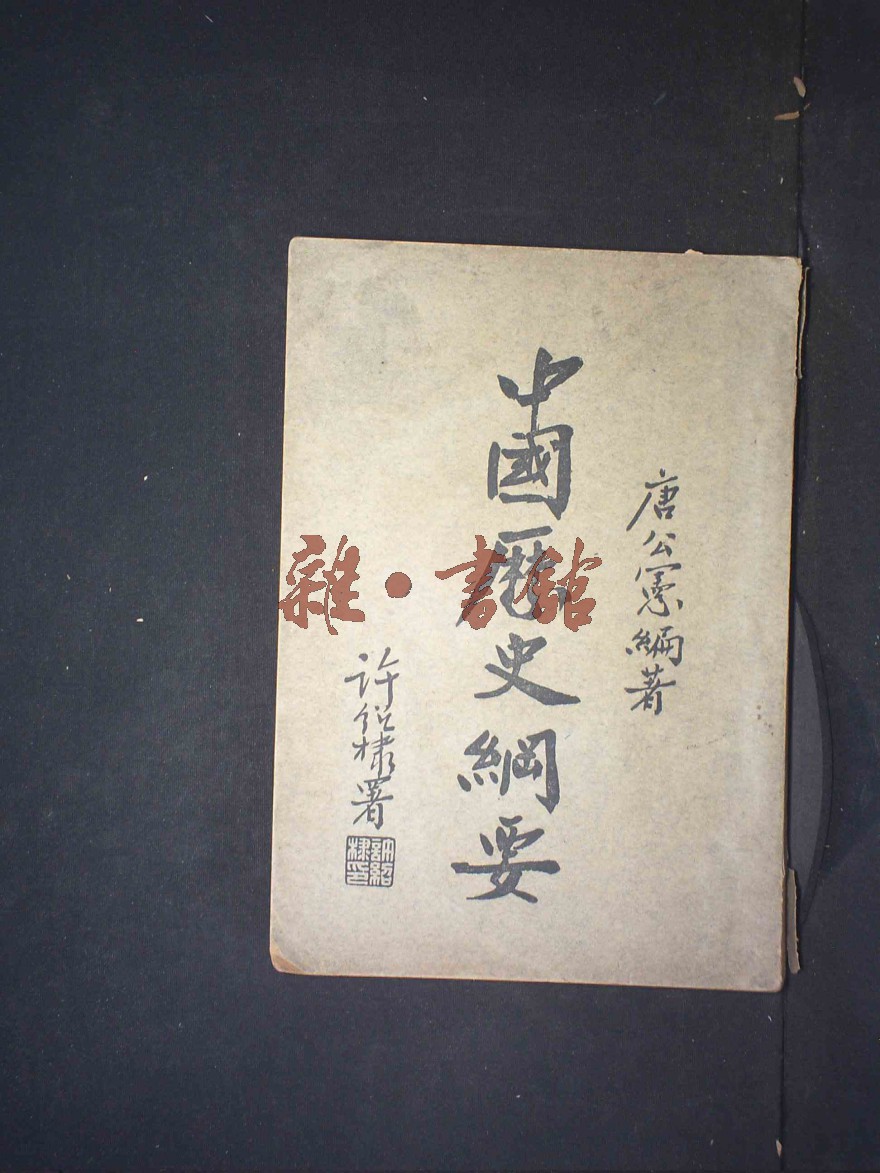 唐公憲編著
中國歷史綱要
許紹棣署
許紹棣印
雜·書館